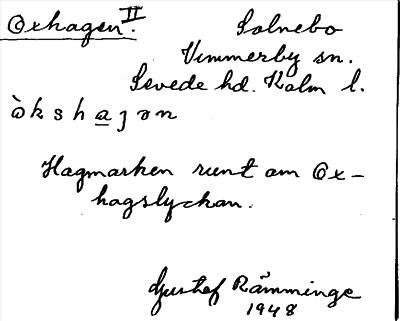 Oxhagen II. Solnebo
Vimmerby sn.
Sevede hd. Kalm l.
òkshaȷɘn
Hagmarken runt om Ox-
hagslyckan.
Gustaf Rämminge
1948